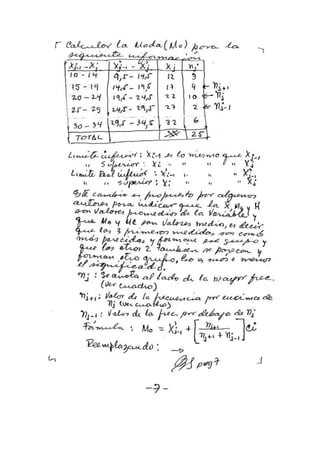 Calcular la Moda (Mo) para la
siguiente información
Xj-1 - Xj X'j-1 - X'j Xj nj
10 - 14 9,5 - 14,5 12 3
15 - 19 14,5 - 19,5 17 4 nj+1
20 - 24 19,5 - 24,5 22 10 nj
25 - 29 24,5 - 29,5 27 2 nj-1
30 - 34 29,5 - 34,5 32 6
TOTAL 25
Limite inferior : Xj-1 es lo mismo que Xj-1
" Superior : Xj " " " " Xj
Limite Real inferior : X'j-1 " " X'j-1
" " Superior : X'j " " "
Este cambio es propuesto por algunos
autores para indicar que la X, Mg y H
son valores promedios de la variable y
que Mo y Me son valores medio, es decir
que los 3 primeros medidas son como
más parecidas, y forman ese grupo y
que los otros 2 también se parecen y
forman otro grupo, eso es, mas o menos
el significado.
nj : Se anota al lado de la mayor frec.
(Ver cuadro)
nj+1 : Valor de la frecuencia por encima de
nj (ver cuadro)
nj-1 : Valor de la frec. por debajo de nj
Fórmula : Mo = X'j-1 + [nj+1 / nj+1 + nj-1] Ci
Reemplazando :
pag 7
-7-